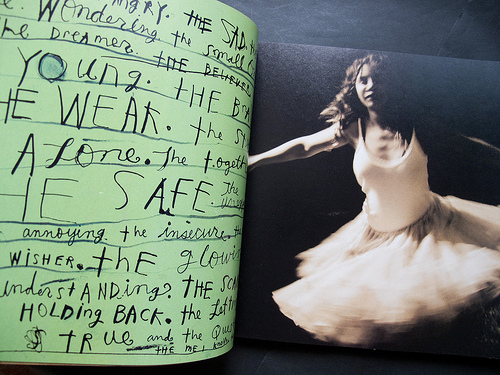 ANGRY. THE SAD.
e. Wondering the small
he DREAMER. THE BELIEVER
YOUNg. THE
HE WEAK. the
Alone. The togeth
HE SAFE. The
annoying. the insecure. the
WISHER. thE glowin
UnderstANDing. THE
HOLDING BACK. the Left
IS TRUE and the
THE ME I